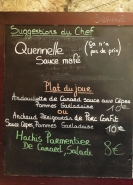 Suggestions du Chef
Quenelle (Ça n'a
Sauce mafé pas de prix)
Plat du jour
Andouillette de Canard Sauce aux Cèpes
Pommes Sarladaises 15€
ou
de Porc Confit
Sauce Cèpes, Pommes Sarladaises 10€
Hachis Parmentier
De Canard, Salade 8€